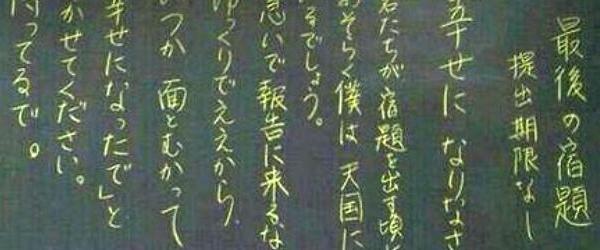 最後の宿題
提出期限なし
幸せになりなさ
君たちが宿題を出す頃
おそらく僕は天国に
るでしょう。
急いで報告に来るな
ゆっくりでええから
つか面とむかって
幸せになったで」と
かせてください。
待ってるで。